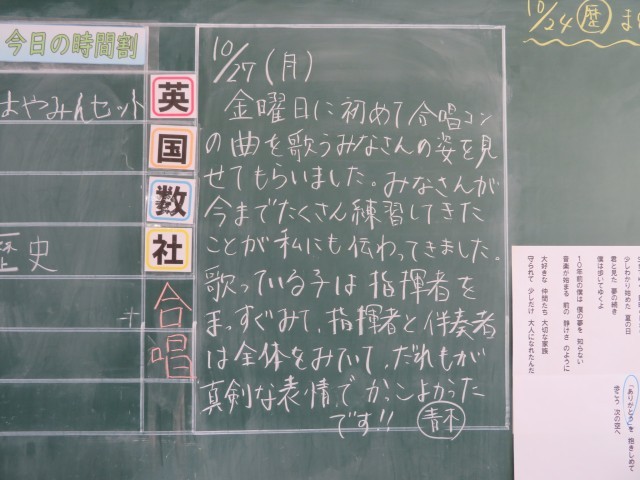 今日の時間割
はやみんセット
英
国
数
社
歴史
合
唱
10/27(月)
金曜日に初めて合唱コン
の曲を歌うみなさんの姿を見
せてもらいました。みなさんが
今までたくさん練習してきた
ことが私にも伝わってきました。
歌っている子は指揮者を
まっすぐみて、指揮者と伴奏者
は全体をみていて、だれもが
真剣な表情でかっこよかった
です!!
10/24(歴)
少しわかり始めた 夏の日
君と見た 夢の続き
僕は歩いてゆくよ
10年前の僕は 僕の夢を 知らない
音楽が始まる 前の 静けさ のように
大好きな 仲間たち 大切な家族
守られて 少しだけ 大人になれたんだ
「ありがとう」を 抱きしめて
歩こう 次の空へ